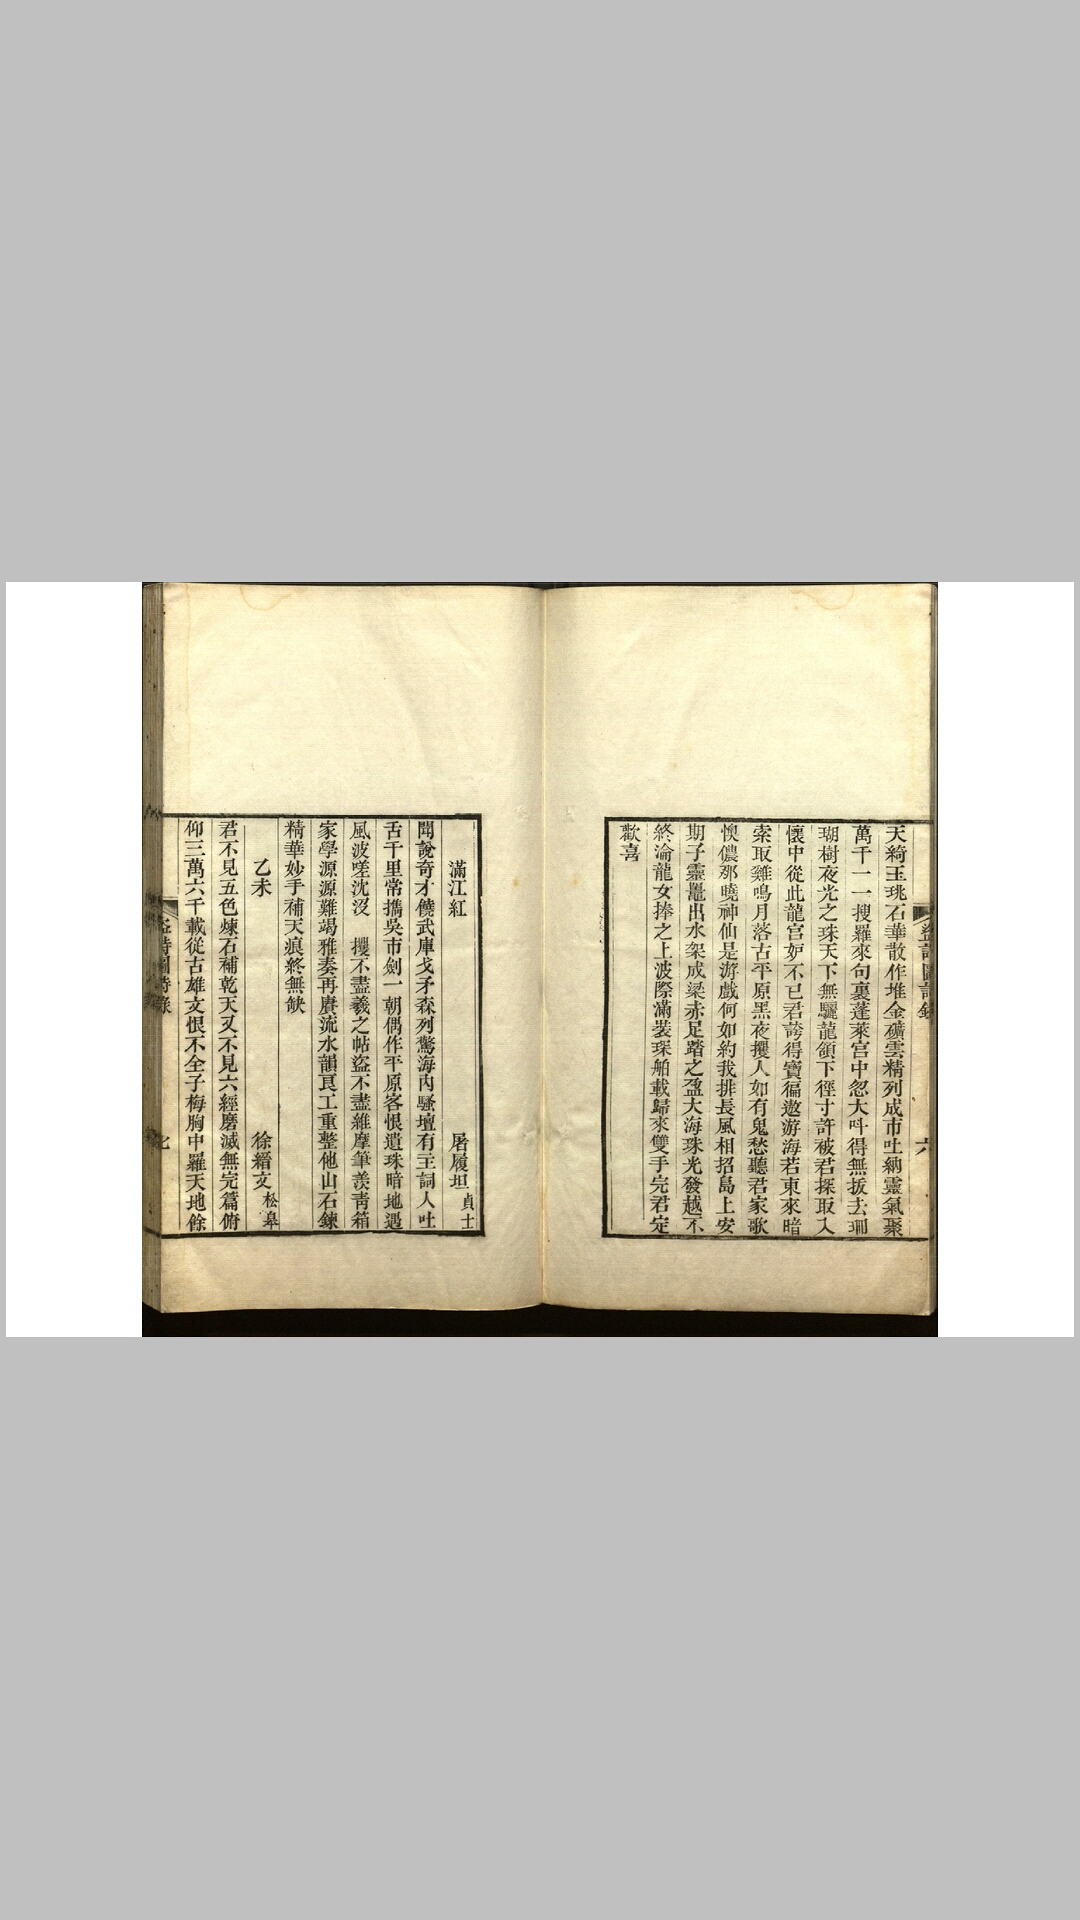 盜詩圖詩錄
六
天綺玉珧石華散作堆金礦雲精列成市吐納靈氣聚
萬千一一搜羅來句裏蓬萊宮中忽大呌得無拔去珊
瑚樹夜光之珠天下無驪龍頷下徑寸許被君探取入
懷中從此龍宮妒不已君誇得寶徧遨游海若東來暗
索取雞鳴月落古平原黑夜攫人如有鬼愁聽君家歌
懊儂那曉神仙是游戲何如約我排長風相招島上安
期子靈鼉出水架成梁赤足踏之盈大海珠光發越不
終淪龍女捧之上波際滿裝琛舶載歸來雙手完君定
歡喜
滿江紅 屠履坦貞士
聞說奇才饒武庫戈矛森列驚海內騷壇有主詞人吐
舌千里常攜吳市劍一朝偶作平原客恨遺珠暗地遇
風波嗟沈沒 攫不盡羲之帖盜不盡維摩筆羨靑箱
家學源源難竭雅奏再賡流水韻良工重整他山石鍊
精華妙手補天痕終無缺
乙未 徐縉文松皋
君不見五色煉石補乾天又不見六經磨滅無完篇俯
仰三萬六千載從古雄文恨不全子梅胸中羅天地餘
盜詩圖詩錄
七